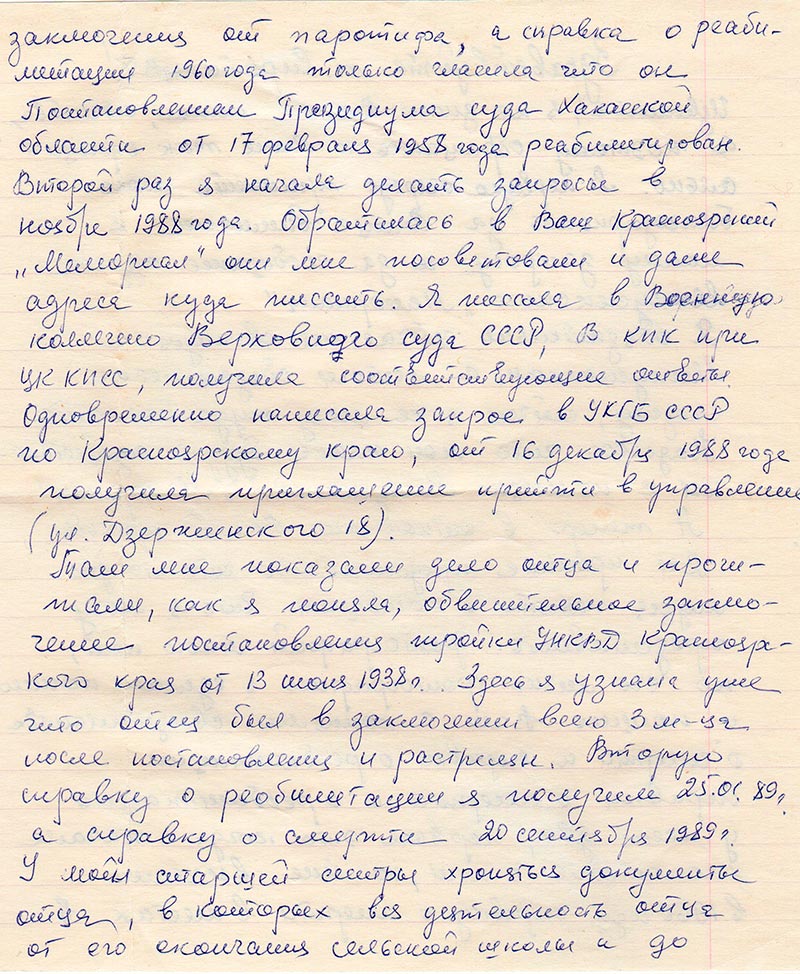 заключения от паротифа, а справка о реаби-
литации 1960 года только гласила что он
Постановлением Президиума суда Хакасской
области от 17 февраля 1958 года реабилитирован.
Второй раз я начала делать запросы в
ноябре 1988 года. Обратилась в Ваш Красноярский
„Мемориал" они мне посоветовали и дали
адреса куда писать. Я писала в Военную
коллегию Верховного суда СССР, В КПК при
ЦК КПСС, получила соответствующие ответы.
Одновременно написала запрос в УКГБ СССР
по Красноярскому краю, от 16 декабря 1988 года
получила приглашение прийти в управление
(ул. Дзержинского 18).
Там мне показали дело отца и прочи-
тали, как я поняла, обвинительное заклю-
чение постановления тройки УНКВД Краснояр-
кого края от 13 июня 1938 г. Здесь я узнала уже
что отец был в заключении всего 3 м-ца
после постановления и растрелян. Вторую
справку о реобилитации я получила 25.01.89г.
а справку о смерти 20 сентября 1989 г.
У моей старшей сестры хроняться документы
отца, в которых вся деятельность отца
от его окончания сельской школы и до